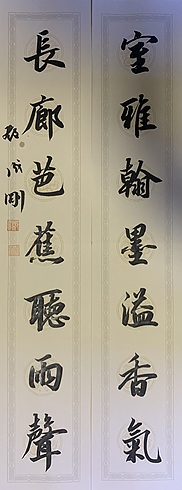 室雅翰墨溢香氣
長廊芭蕉聽雨聲
成剛